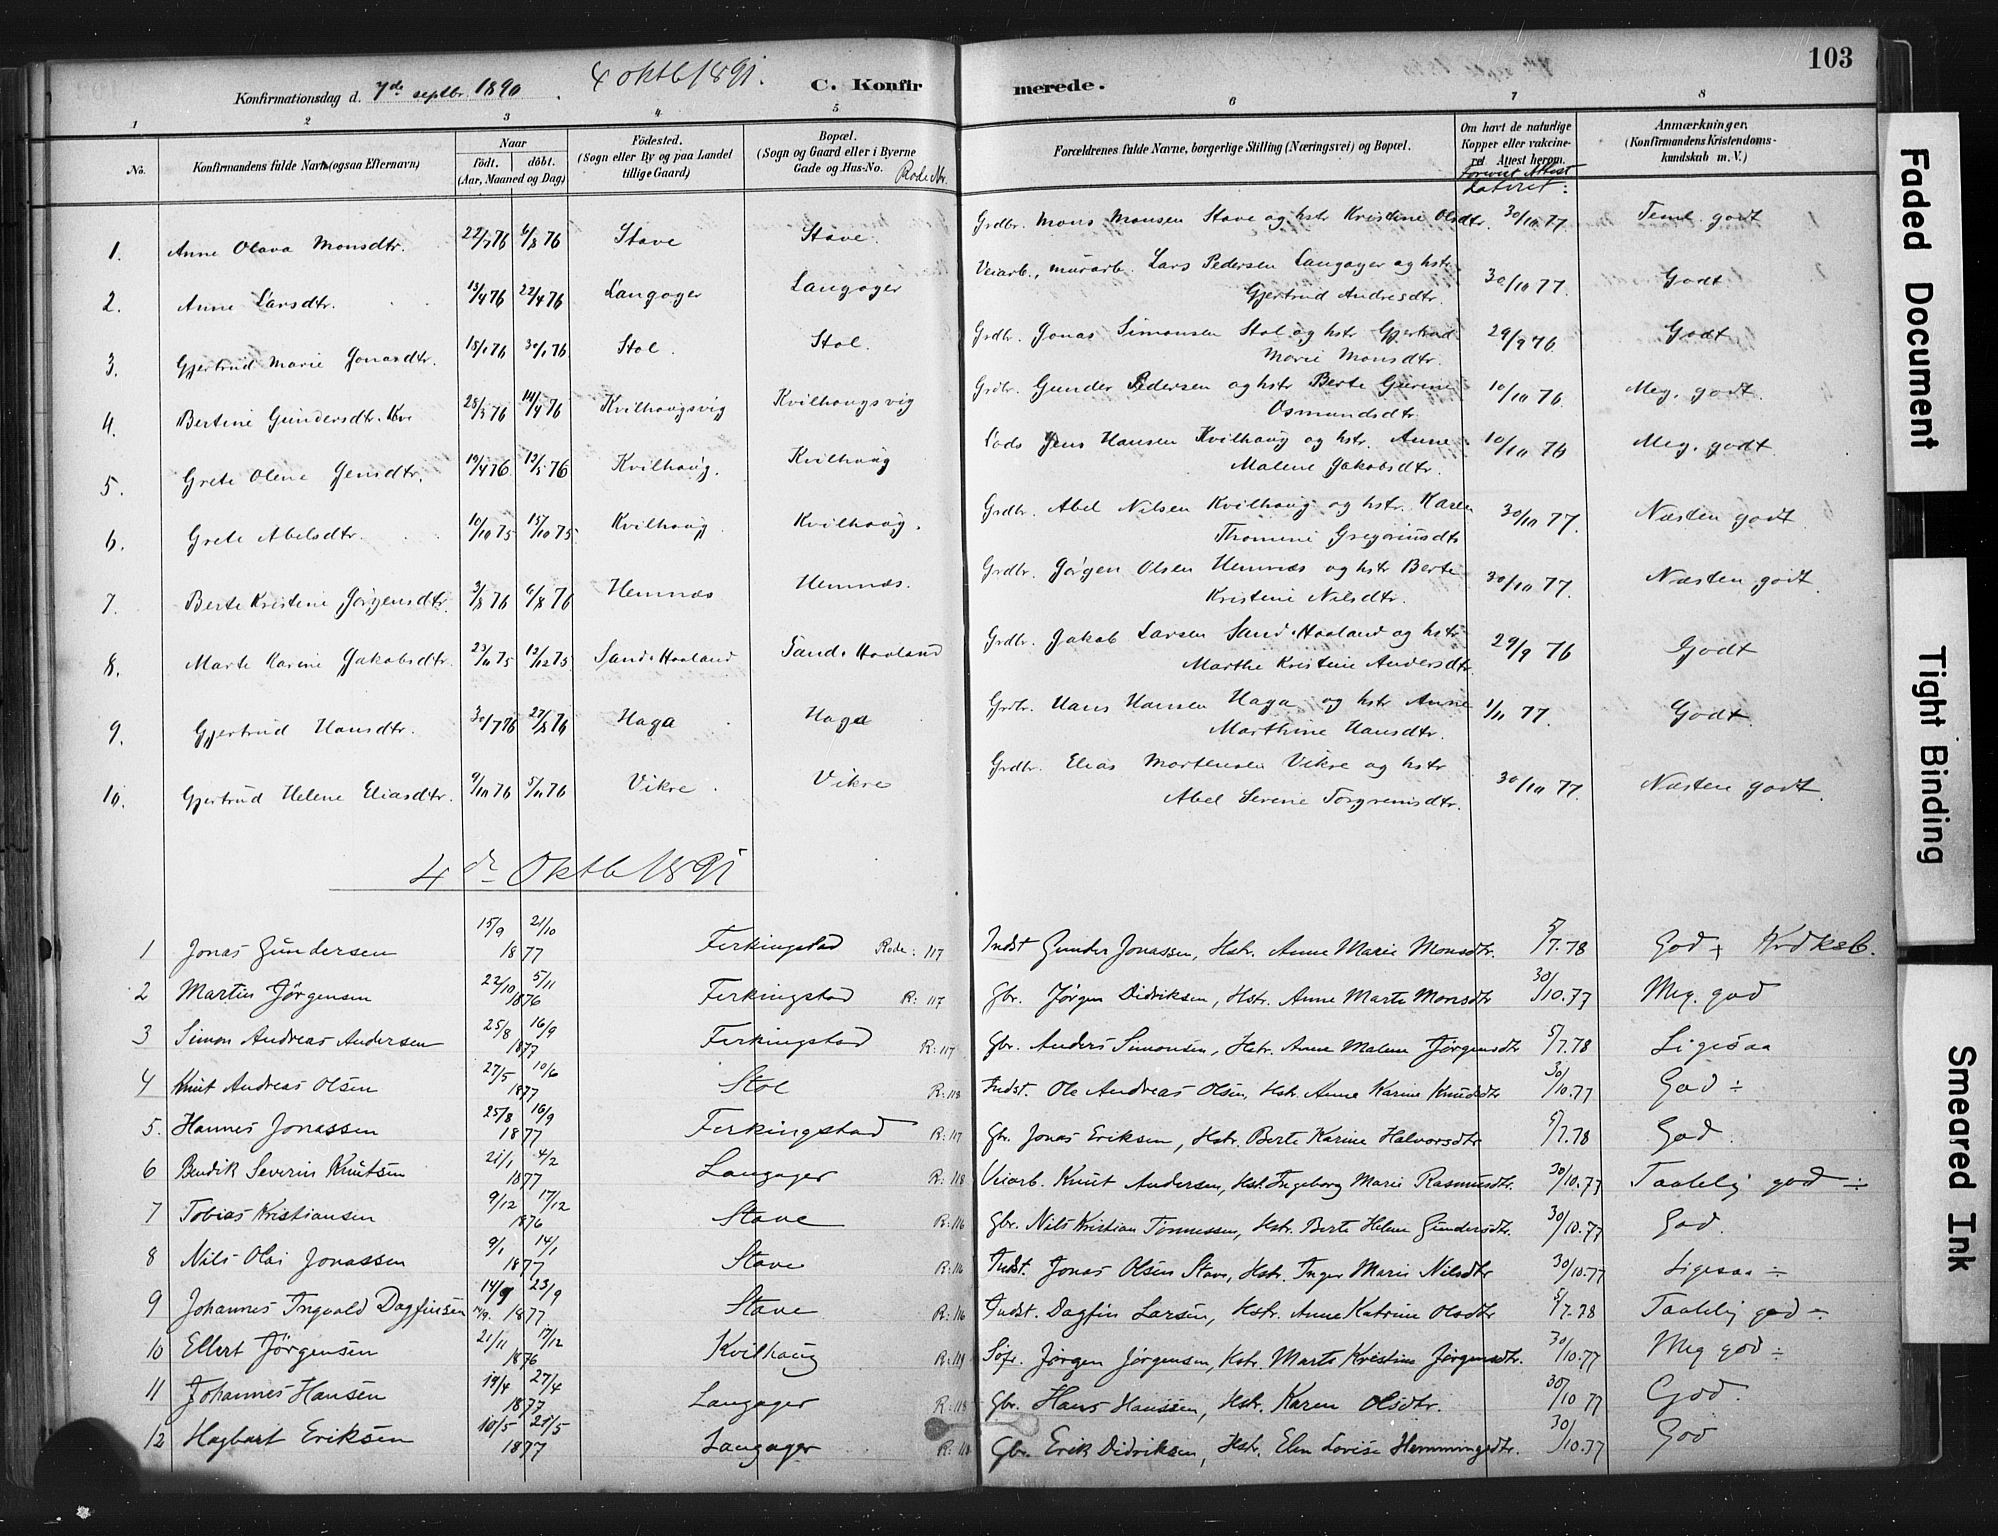 103
Konfirmationsdag d. 7de septbr. 1890. 4 oktb 1891.
C. Konfirmerede.
1 2 3 4 5 6 7 8
No.
Konfirmandens fulde Navn (ogsaa Efternavn)
Naar
födt. döbt.
(Aar, Maaned og Dag)
Födested.
(Sogn eller By og paa Landet
tillige Gaard)
Bopæl.
(Sogn og Gaard eller i Byerne
Gade og Hus-No.
Rode Nr.
Forældrenes fulde Navne, borgerlige Stilling (Næringsvei) og Bopæl.
Om havt de naturlige
Kopper eller vakcine-
ret Attest herom.
Forevist Attest
dateret:
Anmærkninger.
(Konfirmandens Kristendoms-
kundskab m. V.)
1. Anne Olava Monsdtr. 22/7 76 6/8 76 Stave Stave. Grdbr. Mons Monsen Stave og hstr Kristine Olsdtr. 30/10 77. Teml. godt
2. Anne Larsdtr. 13/4 76 22/4 76 Langager Langager Veiarb., murarb. Lars Pedersen Langager og hstr
Gjertrud Andresdtr. 30/10 77. Godt
3. Gjertrud Marie Jonasdtr. 15/1 76 30/1 76 Stol. Stol. Grdbr. Jonas Simonsen Stol og hstr Gjertrud
Marie Monsdtr. 29/9 76. Godt
4. Bertine Gundersdtr. Kvi 28/3 76 14/4 76 Kvilhougsvig Kvilhougsvig Grdbr. Gunder Pedersen og hstr Berte Gurine
Osmundsdtr. 10/10 76. Meg. godt.
5. Grete Olene Jensdtr. 19/4 76 13/5 76 Kvilhoug. Kvilhoug Lods Jens Hansen Kvilhoug og hstr. Anne
Malene Jakobsdtr. 10/10 76 Meg. godt
6. Grete Abelsdtr. 10/10 75 15/10 75 Kvilhoug. Kvilhoug. Grdbr. Abel Nilsen Kvilhoug og hstr. Karen
Thomine Gregoriusdtr 30/10 77. Næsten godt
7. Berte Kristine Jørgensdtr. 3/8 76 6/8 76 Hemnæs Hemnæs. Grdbr. Jørgen Olsen Hemnæs og hstr Berte
Kristine Nilsdtr. 30/10 77. Næsten godt.
8. Marte Karine Jakobsdtr. 23/11 75 12/12 75 Sand. Haaland Sand. Haaland Grdbr. Jakob Larsen Sand. Haaland og hstr
Marthe Kristine Andersdtr 29/9 76 Godt
9. Gjertrud Hansdtr. 30/7 76 27/8 76 Haga Haga Grdbr. Hans Hansen Haga og hstr Anne
Marthine Hansdtr. 1/11 77. Godt.
10. Gjertrud Helene Eliasdtr. 9/10 76 5/11 76 Vikre Vikre Grdbr. Elias Mortensen Vikre og hstr
Abel Serine Torgrimsdtr. 30/10 77. Næsten godt.
4de Oktb 1891
1 Jonas Gundersen 15/9 21/10 1877 Ferkingstad Rode: 117 Indst Gunder Jonassen, Hstr. Anne Marie Monsdtr. 5/7.78 God
2 Martin Jørgensen 22/10 5/11 1876 Ferkingstad R: 117 Gbr. Jørgen Didriksen, Hstr. Anne Marte Monsdtr 30/10.77 Meg. god
3 Simon Andreas Andersen 25/8 16/9 1877 Ferkingstad R: 117 Gbr. Anders Simonsen, Hstr. Anne Malene Jørgensdtr 5/7.78 Ligesaa
4 Knut Andreas Olsen 27/5 10/6 1877 Stol R: 118 Indst. Ole Andreas Olsen, Hstr. Anne Karine Knudsdtr 30/10.77 God ÷
5. Hannes Jonassen 25/8 16/9 1877 Ferkingstad R: 117 Gbr. Jonas Eriksen, Hstr. Berte Karine Halvorsdtr 5/7.78 God.
6 Bendik Severin Knutsen 21/1 4/2 1877 Langager R: 118 Veiarb. Knut Andersen, Hst. Ingeborg Marie Rasmusdtr. 30/10.77 Taalelig god ÷
7 Tobias Kristiansen 9/12 17/12 1876 Stave R: 116 Gbr. Nils Kristian Tønnessen, Hstr. Berte Helene Gundersdtr. 30/10.77 God.
8 Nils Olai Jonassen 9/1 14/1 1877 Stave R: 116 Indst. Jonas Olsen Stave, Hstr. Inger Marie Nilsdtr 30/10.77 Ligesaa ÷
9 Johannes Ingvald Dagfinsen 14/9 23/9 14/9. 1877 Stave R: 116 Indst. Dagfin Larsen, Hstr. Anne Katrine Olsdtr 5/7.78 Taalelig god ÷
10 Ellert Jørgensen 21/11 17/12 1876 Kvilhaug R: 119 Søfr. Jørgen Jørgensen, Hstr. Marte Kristine Jørgensdtr. 30/10.77 Meg god ÷
11 Johannes Hansen 19/4 27/4 1877 Langager R: 118 Gbr. Hans Hanssen, Hstr. Karen Olsdtr. 30/10 77 God
12 Hagbart Eriksen 10/5 21/5 1877 Langager Gbr. Erik Didriksen, Hstr. Elen Lovise Hemmingsdtr. 30/10.77 God
Faded Document
Tight Binding
Smeared Ink